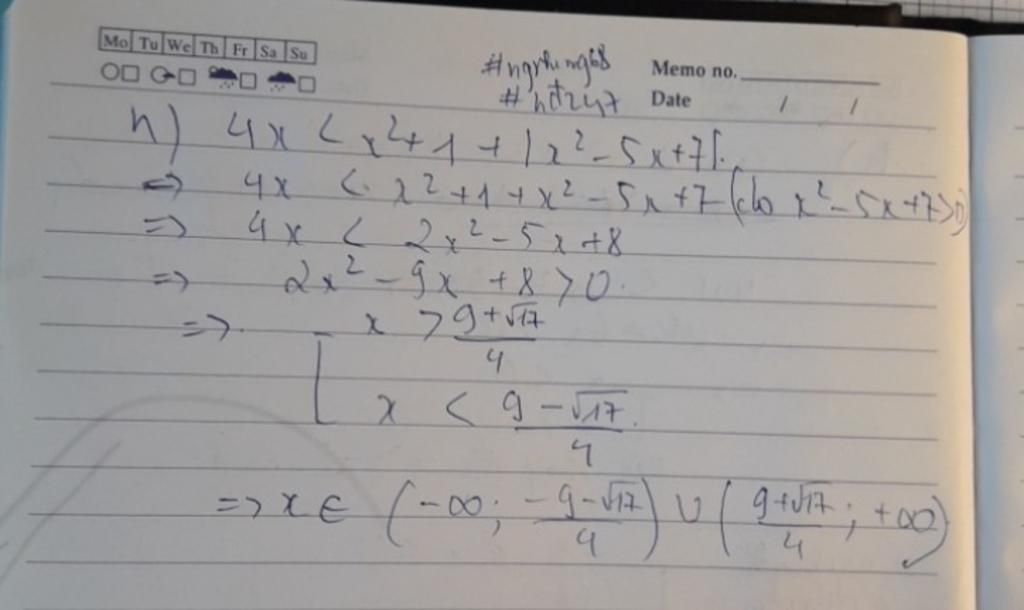 Mo Tu We Th Fr Sa Su
#ngrhung68 Memo no.
#hd247 Date / /
h) 4x < x²+1 + |x²-5x+7|.
=> 4x < x²+1+x²-5x+7 (do x²-5x+7>0)
=> 4x < 2x²-5x+8
=> 2x²-9x+8>0.
=> [ x > (9+√17)/4
x < (9-√17)/4
=> x ∈ (-∞; (-9-√17)/4) ∪ ((9+√17)/4; +∞)